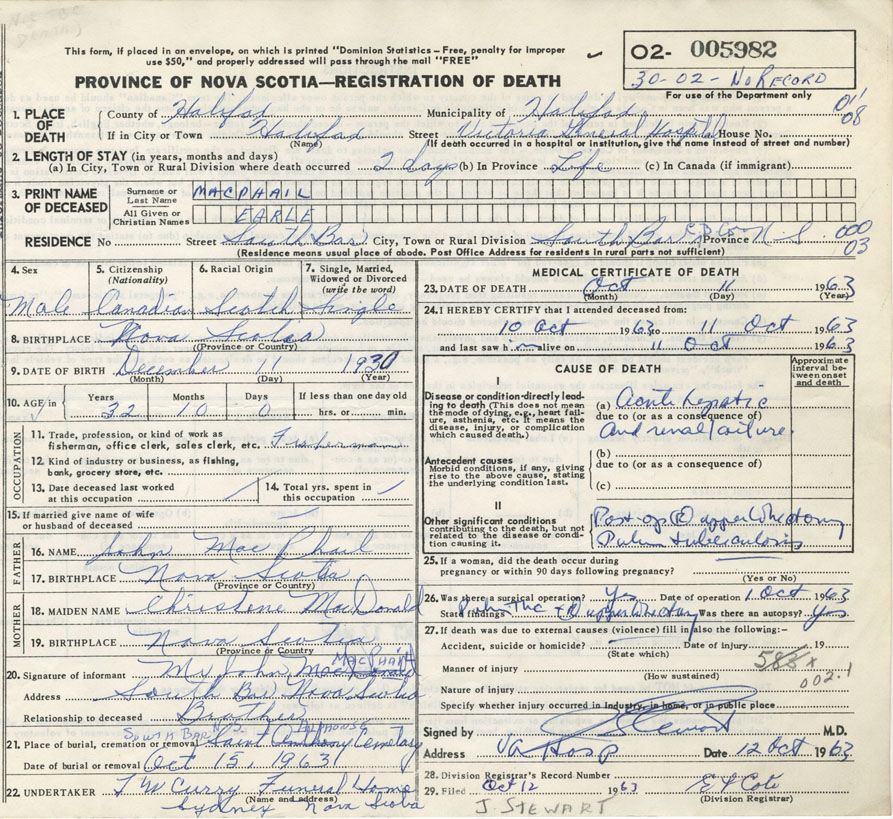 This form, if placed in an envelope, on which is printed "Dominion Statistics – Free, penalty for improper
use $50," and properly addressed will pass through the mail "FREE"
PROVINCE OF NOVA SCOTIA—REGISTRATION OF DEATH
02- 005982
30-02-No Record
For use of the Department only
1. PLACE OF DEATH
County of Halifax Municipality of Halifax 011
If in City or Town Halifax Street Victoria General Hospital House No. 08
(Name) (If death occurred in a hospital or institution, give the name instead of street and number)
2. LENGTH OF STAY (in years, months and days)
(a) In City, Town or Rural Division where death occurred 2 days (b) In Province Life (c) In Canada (if immigrant)
3. PRINT NAME OF DECEASED
Surname or Last Name MACPHAIL
All Given or Christian Names EARLE
RESIDENCE No Street South Bar City, Town or Rural Division South Bar Province N.S. 000
03
(Residence means usual place of abode. Post Office Address for residents in rural parts not sufficient)
4. Sex 5. Citizenship (Nationality) 6. Racial Origin 7. Single, Married, Widowed or Divorced (write the word)
Male Canadian Scotch Single
8. BIRTHPLACE Nova Scotia
(Province or Country)
9. DATE OF BIRTH December 11 1930
(Month) (Day) (Year)
10. AGE in Years Months Days If less than one day old
32 10 0 hrs. or min.
OCCUPATION
11. Trade, profession, or kind of work as
fisherman, office clerk, sales clerk, etc. Fisherman
12. Kind of industry or business, as fishing,
bank, grocery store, etc.
13. Date deceased last worked at this occupation 14. Total yrs. spent in this occupation
15. If married give name of wife
or husband of deceased
FATHER
16. NAME John MacPhail
17. BIRTHPLACE Nova Scotia
(Province or Country)
MOTHER
18. MAIDEN NAME Christene MacDonald
19. BIRTHPLACE Nova Scotia
(Province or Country)
MACPHAIL
20. Signature of informant Mr John
Address South Bar Nova Scotia
Relationship to deceased Brother
SOUTH BAR N.S. ALPHONSE
21. Place of burial, cremation or removal Saint Anthony Cemetary
Date of burial or removal Oct 15, 1963
22. UNDERTAKER T W Curry Funeral Home
(Name and address)
Sydney Nova Scotia
MEDICAL CERTIFICATE OF DEATH
23. DATE OF DEATH Oct 11 1963
(Month) (Day) (Year)
24. I HEREBY CERTIFY that I attended deceased from:
10 Oct 1963 to 11 Oct 1963
and last saw him alive on 11 Oct 1963
CAUSE OF DEATH
Approximate interval between onset and death
I
Disease or condition directly leading to death (This does not mean the mode of dying, e.g., heart failure, asthenia, etc. It means the disease, injury, or complication which caused death.)
(a) Acute hepatic
due to (or as a consequence of)
and renal failure.
Antecedent causes
Morbid conditions, if any, giving rise to the above cause, stating the underlying condition last.
(b)
due to (or as a consequence of)
(c)
II
Other significant conditions
contributing to the death, but not related to the disease or condition causing it.
Post-op (R) upper lobectomy
Pulm tuberculosis
25. If a woman, did the death occur during
pregnancy or within 90 days following pregnancy?
(Yes or No)
26. Was there a surgical operation? Yes Date of operation 1 Oct 1963
State findings Pulm Tbc + (R) upper lobectomy Was there an autopsy? Yes
27. If death was due to external causes (violence) fill in also the following:–
Accident, suicide or homicide? Date of injury 19
(State which)
Manner of injury
(How sustained)
002.1
Nature of injury
Specify whether injury occurred in industry, in home, or in public place
Signed by J Stewart M.D.
Address VG Hosp Date 12 Oct 1963
28. Division Registrar's Record Number
29. Filed Oct 12 1963
(Division Registrar)
J. STEWART